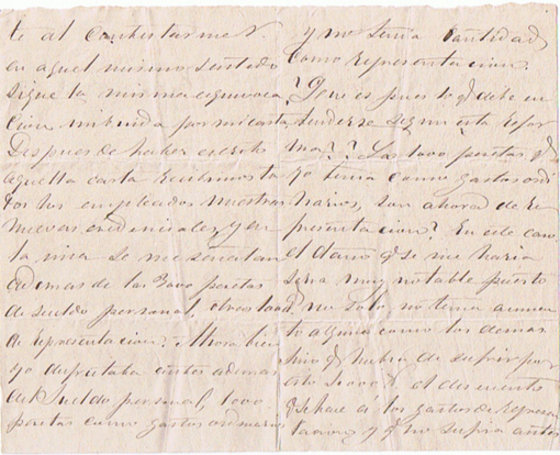 te al contestarme V.
en aquel mismo sentido
sigue la misma equivoca
cion imbuida por mi carta
Despues de haber escrito
aquella carta recibimos ya
todos los empleados nuestras
nuevas credenciales, y en
la mia se me señalan
ademas de las 3000 pesetas
de sueldo personal, otras 1000
de representacion. Ahora bien
yo disfrutaba antes ademas
del sueldo personal, 1000
pesetas como gastos ordinarios
y no tenia cantidad
como representacion.
¿Que es pues lo q debe en
tenderse segun esta refor
ma?? Las 1000 pesetas q
yo tenia como gastos ordi
narios, son ahora de re
presentacion? En este caso
el daño q se me haria
seria muy notable puesto
q no solo no tenia aumen
to alguno como los demas
sino q habia de sufrir por
esto el descuento
q se hace á los gastos de represen
tacion y q no sufria antes